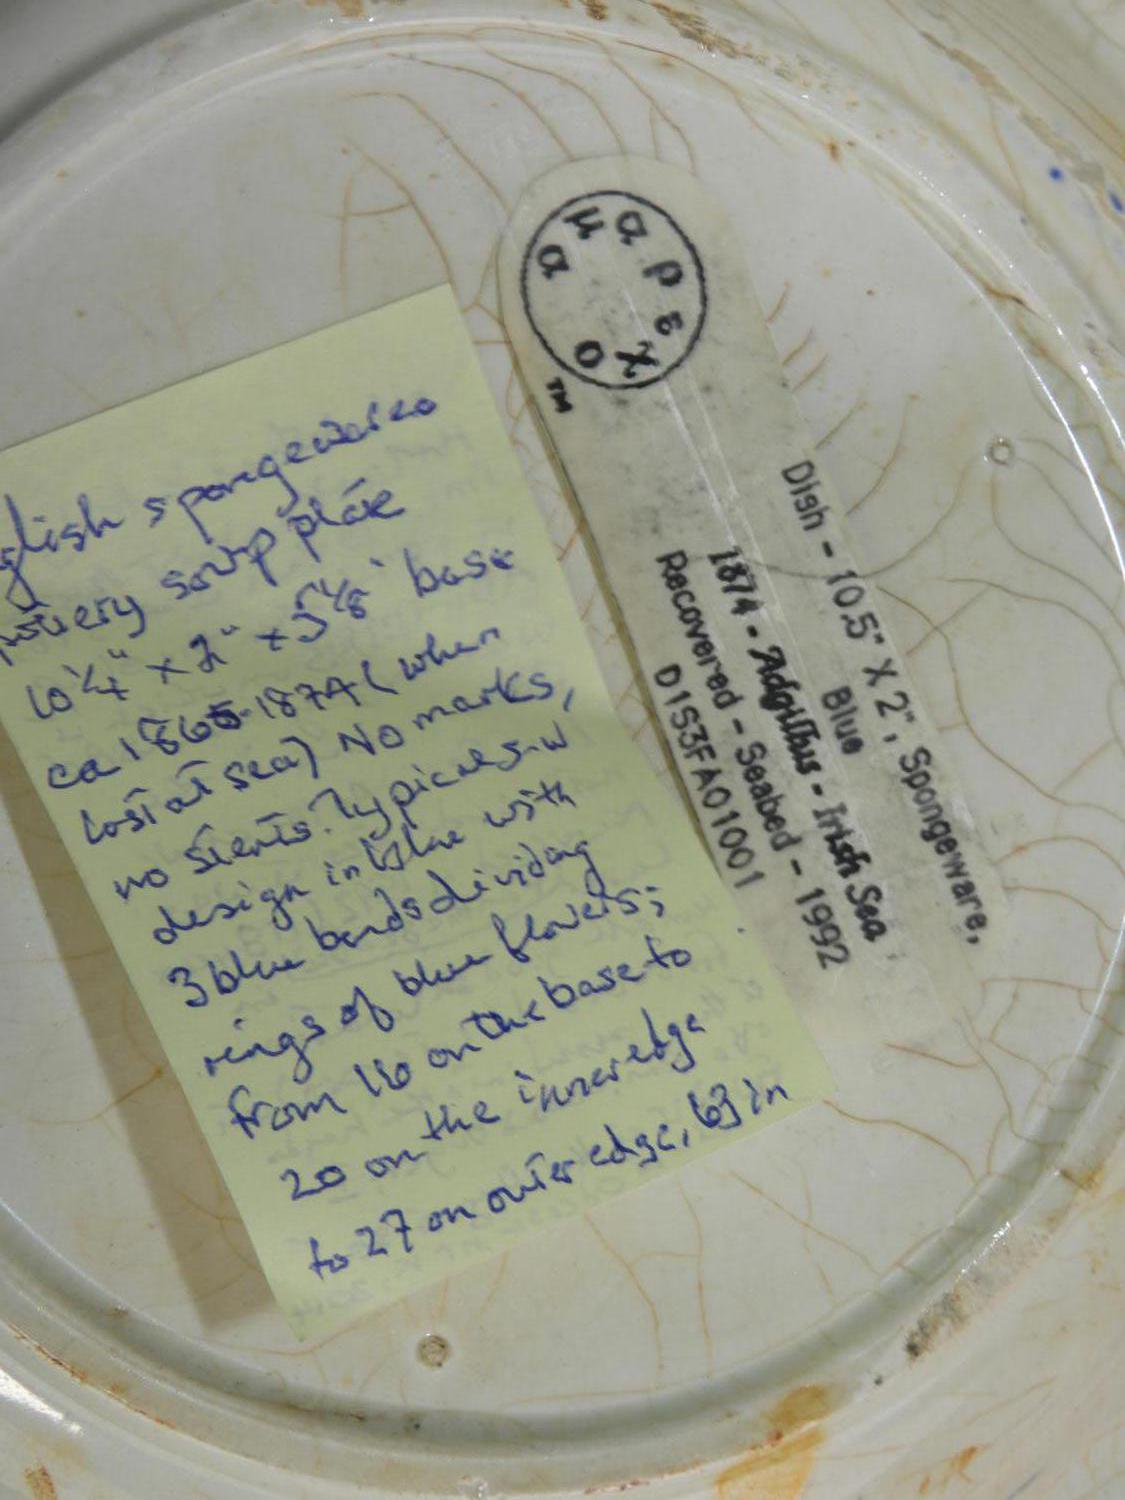 glish spongeware
pottery soup plate
10 1/4" x 2" x 5 1/8" base
ca 1865-1874 (when
lost at sea) No marks,
no stents. Typical
design in blue with
3 blue bands dividing
rings of blue flowers;
from 16 on the base to
20 on the inner edge
to 27 on outer edge, 63 in
α μ α ρ ε χ ο
TM
Dish - 10.5" X 2", Spongeware,
Blue
1874 - - Irish Sea
Recovered - Seabed - 1992
D1S3FA01001